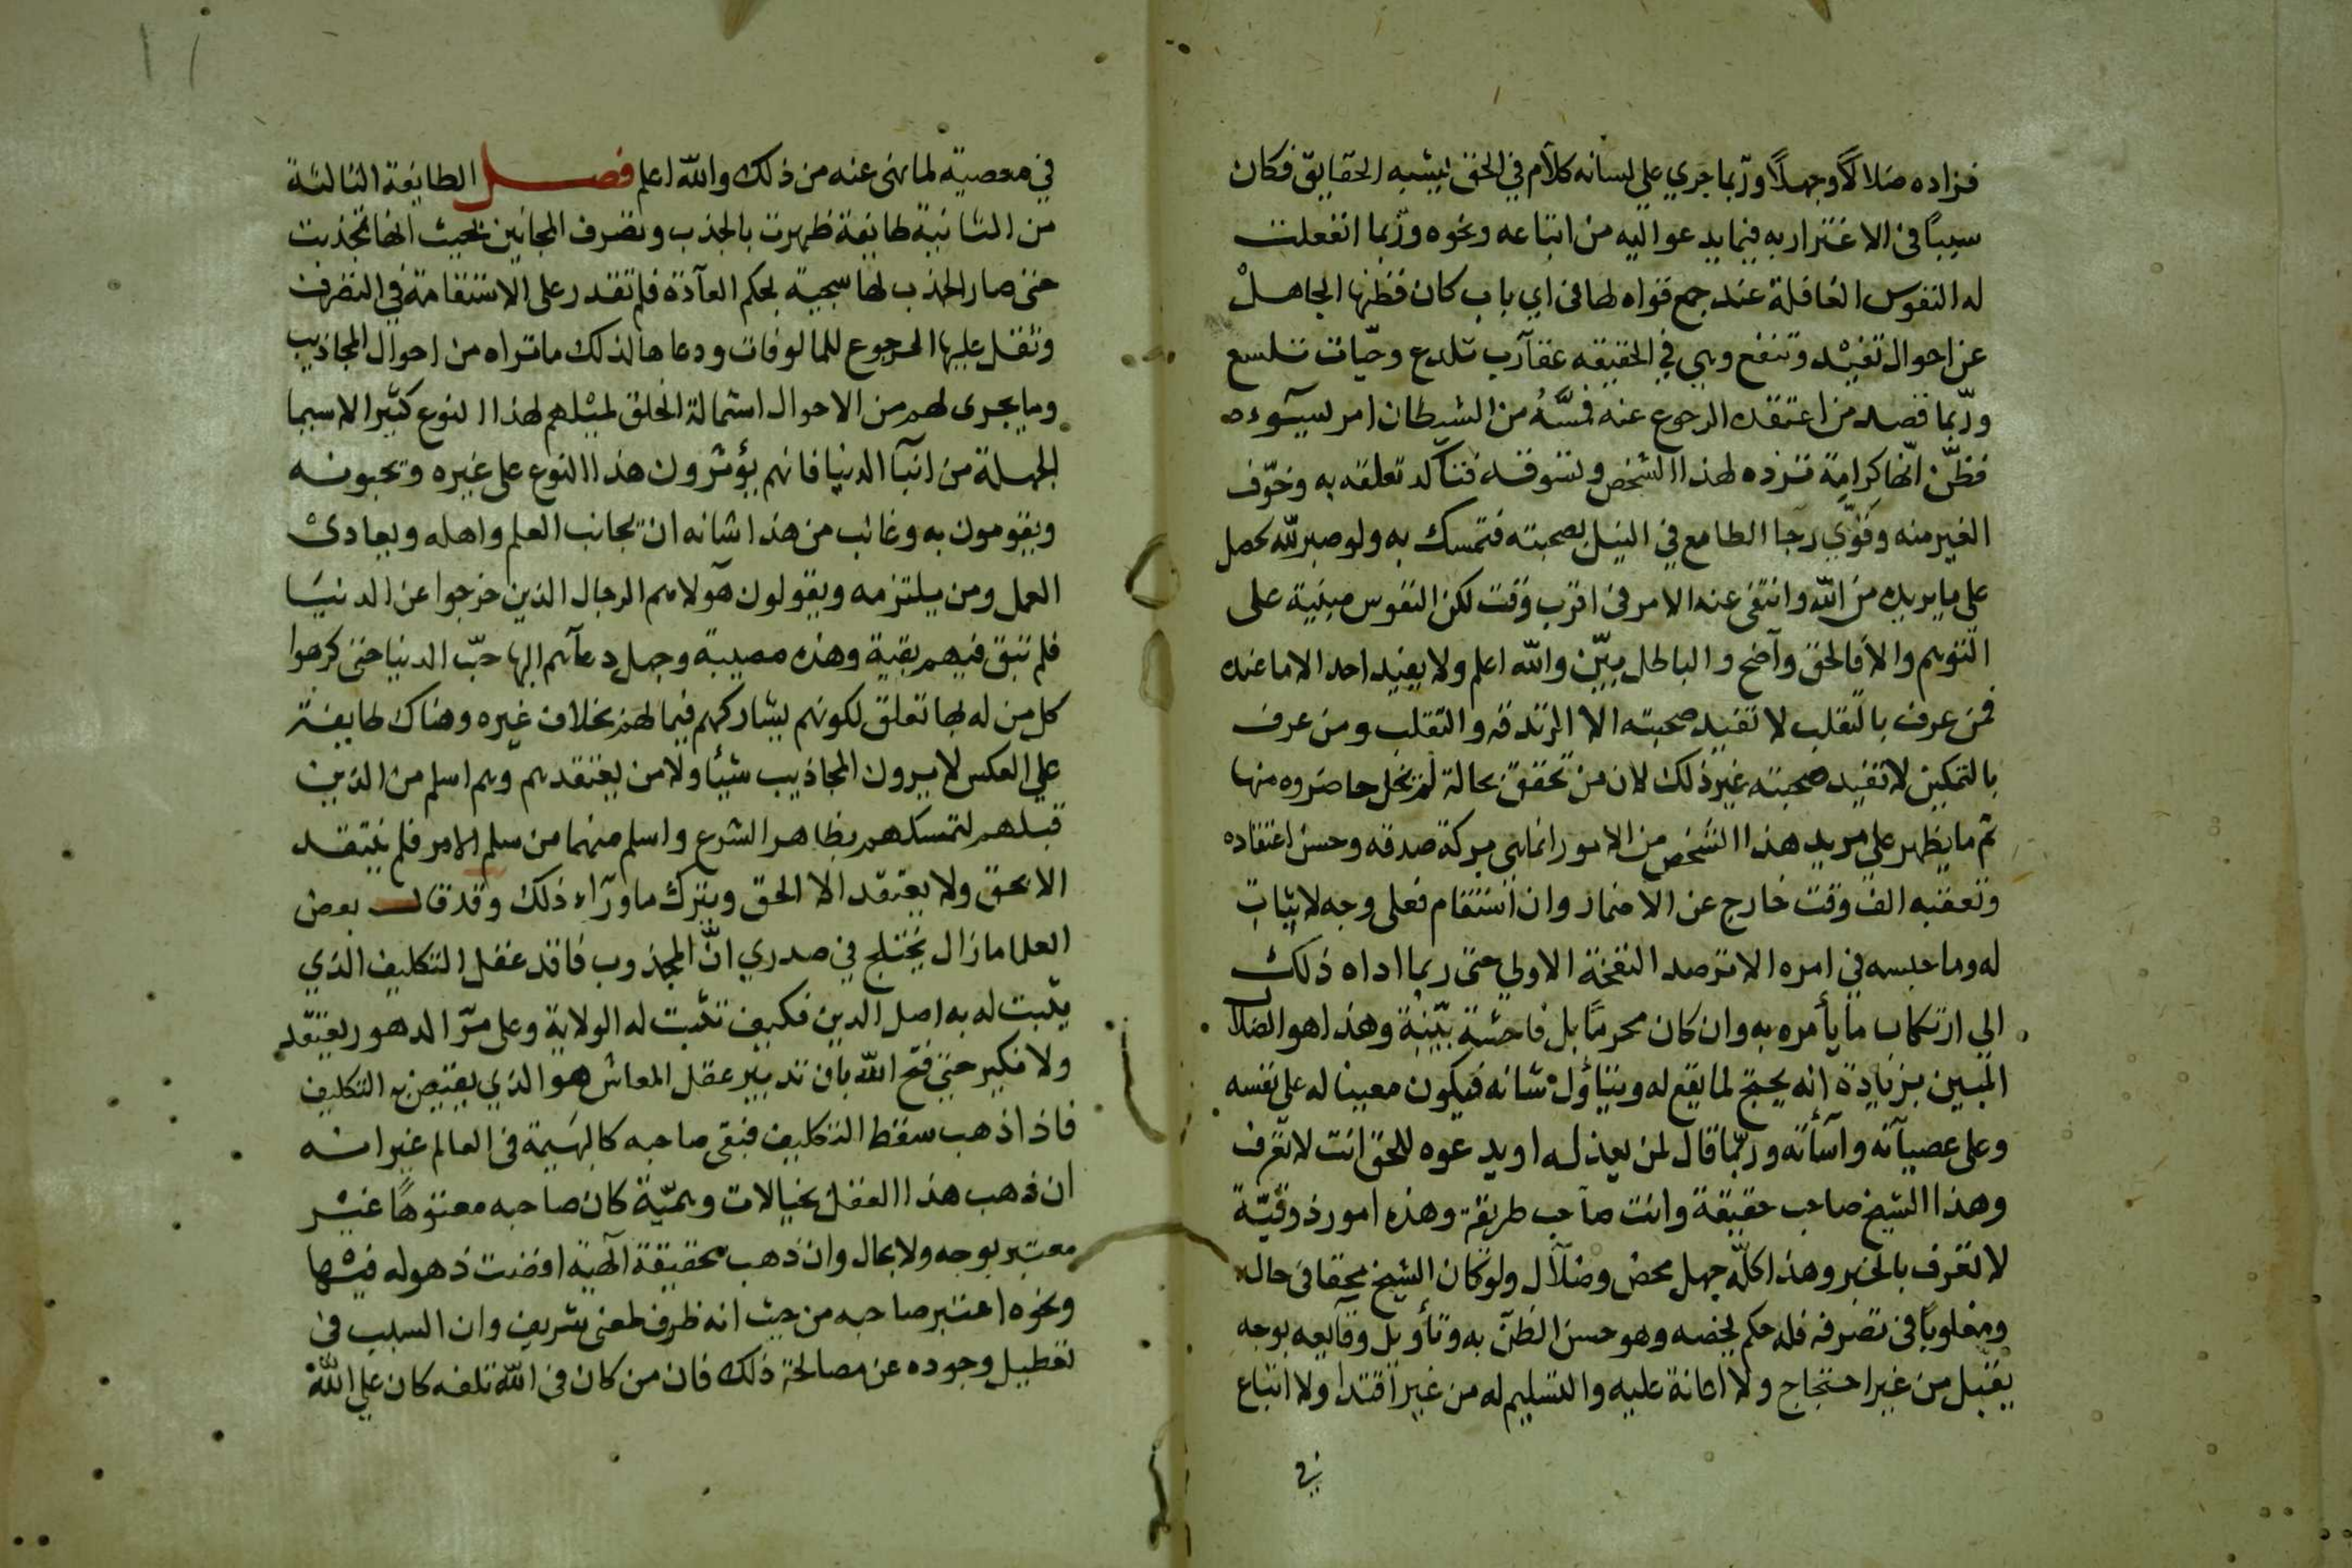 فزاده ضلالاً وجهلاً وربّما جري علي لسانه كلام في الحق يشبه الحقايق فكان
سبباً في الاغترار به فيما يدعو اليه من اتباعه ونحوه وربّما انفعلت
له النفوس الغافلة عند جمع قواه لها في اي باب كان فظنها الجاهل
عن احوال تفيد وتنفع وهي في الحقيقه عقارب تلدع وحيّات تلسع
وربّما قصد من اعتقده الرجوع عنه فمسَّهُ من الشيطان امر يسوءه
فظنّ انّها كرامة تزده لهذا الشخص وتسوقه فتأكد تعلقه به وخوّف
الغير منه وقوّي رجا الطامع في النيل بصحبته فتمسك به ولو صبر لله لحصل
على ما يريده من الله وانتفى عنه الامر في اقرب وقت لكن النفوس مبنية على
التوهم والا فالحق واضح والباطل بيّن والله اعلم ولا يفيد احد الا ما عنده
فمن عرف بالتقلب لا تفيد صحبته الا الزندقه والتقلب ومن عرف
بالتمكين لا تفيد صحبته غير ذلك لان من تحقق بحالة لم يخل حاضروه منها
ثم ما يظهر علي مريد هذا الشخص من الامور انما هي بركة صدقه وحسن اعتقاده
وتعقبه الف وقت خارج عن الا وان استقام فعلى وجه لا ثبات
له وما حبسه في امره الا ترصد النفخة الاولي حتى ربما اداه ذلك
الي ارتكاب ما يأمره به وان كان محرماً بل فاحشة بيّنة وهذا هو الضلال
المبين بزيادة انه يحتج لما يقع له ويتأول شانه فيكون معينا له على نفسه
وعلى عصيانه واسأته وربّما قال لمن يعذله او يدعوه للحق انت لا تعرف
وهذا الشيخ صاحب حقيقة وانت صاحب طريقة وهذه امور ذوقيّة
لا تعرف بالخبر وهذا كلّه جهل محض وضلال ولو كان الشيخ محقا في حاله
ومغلوباً في تصرفه فله حكم يخصه وهو حسن الظن به وتأويل وقايعه بوجه
يقبل من غير احتجاج ولا اعانة عليه والتسليم له من غير اقتدا ولا اتباع
في
في معصية لما نهى عنه من ذلك والله اعلم فصل الطايفة الثالثة
من الثانية طايفة ظهرت بالجذب وتصرف المجانين بحيث انها تجذبت
حتى صار الجذب لها سجية بحكم العادة فلم تقدر على الاستقامة في التصرف
وثقل عليها الرجوع للمالوفات ودعاها لذلك ما تراه من احوال المجاذيب
وما يجرى لهم من الاحوال استمالة الخلق لمثلهم لهذا النوع كثيرا لاسيما
الجهلة من ابنا الدنيا فانهم يؤثرون هذا النوع على غيره ويحبونه
ويقومون به وغالب من هذا شانه ان يجانب العلم واهله ويعادى
العمل ومن يلتزمه ويقولون هولا هم الرجال الذين خرجوا عن الدنيا
فلم تبق فيهم بقية وهذه مصيبة وجهل دعاهم اليها حبّ الدنيا حتى كرهوا
كل من له بها تعلق لكونهم يشاركهم فيما لهم بخلاف غيره وهناك طايفة
علي العكس لا يرون المجاذيب شيأ ولا من يعتقدهم وهم اسلم من الذين
قبلهم لتمسكهم بظاهر الشرع واسلم منهما من سلم الامر فلم ينتقد
الا بحق ولا يعتقد الا الحق ويترك ما ورآء ذلك وقد قال بعض
العلما ما زال يختلج في صدري انّ المجذوب فاقد عقل التكليف الذي
يثبت له به اصل الدين فكيف تثبت له الولاية وعلى مرّ الدهور يعتقد
ولا نكير حتى فتح الله بان تدبير عقل المعاش هو الذي يقتضي به التكليف
فاذا ذهب سقط التكليف فبقى صاحبه كالبهيمة في العالم غير انه
ان ذهب هذا العقل بخيالات وهميّة كان صاحبه معتوهاً غير
معتبر بوجه ولا بحال وان ذهب بحقيقة الٓهية افضت ذهوله فيها
ونحوه اعتبر صاحبه من حيث انه ظرف لمعنى شريف وان السبب في
تعطيل وجوده عن مصالحة ذلك فان من كان في الله تلفه كان علي الله